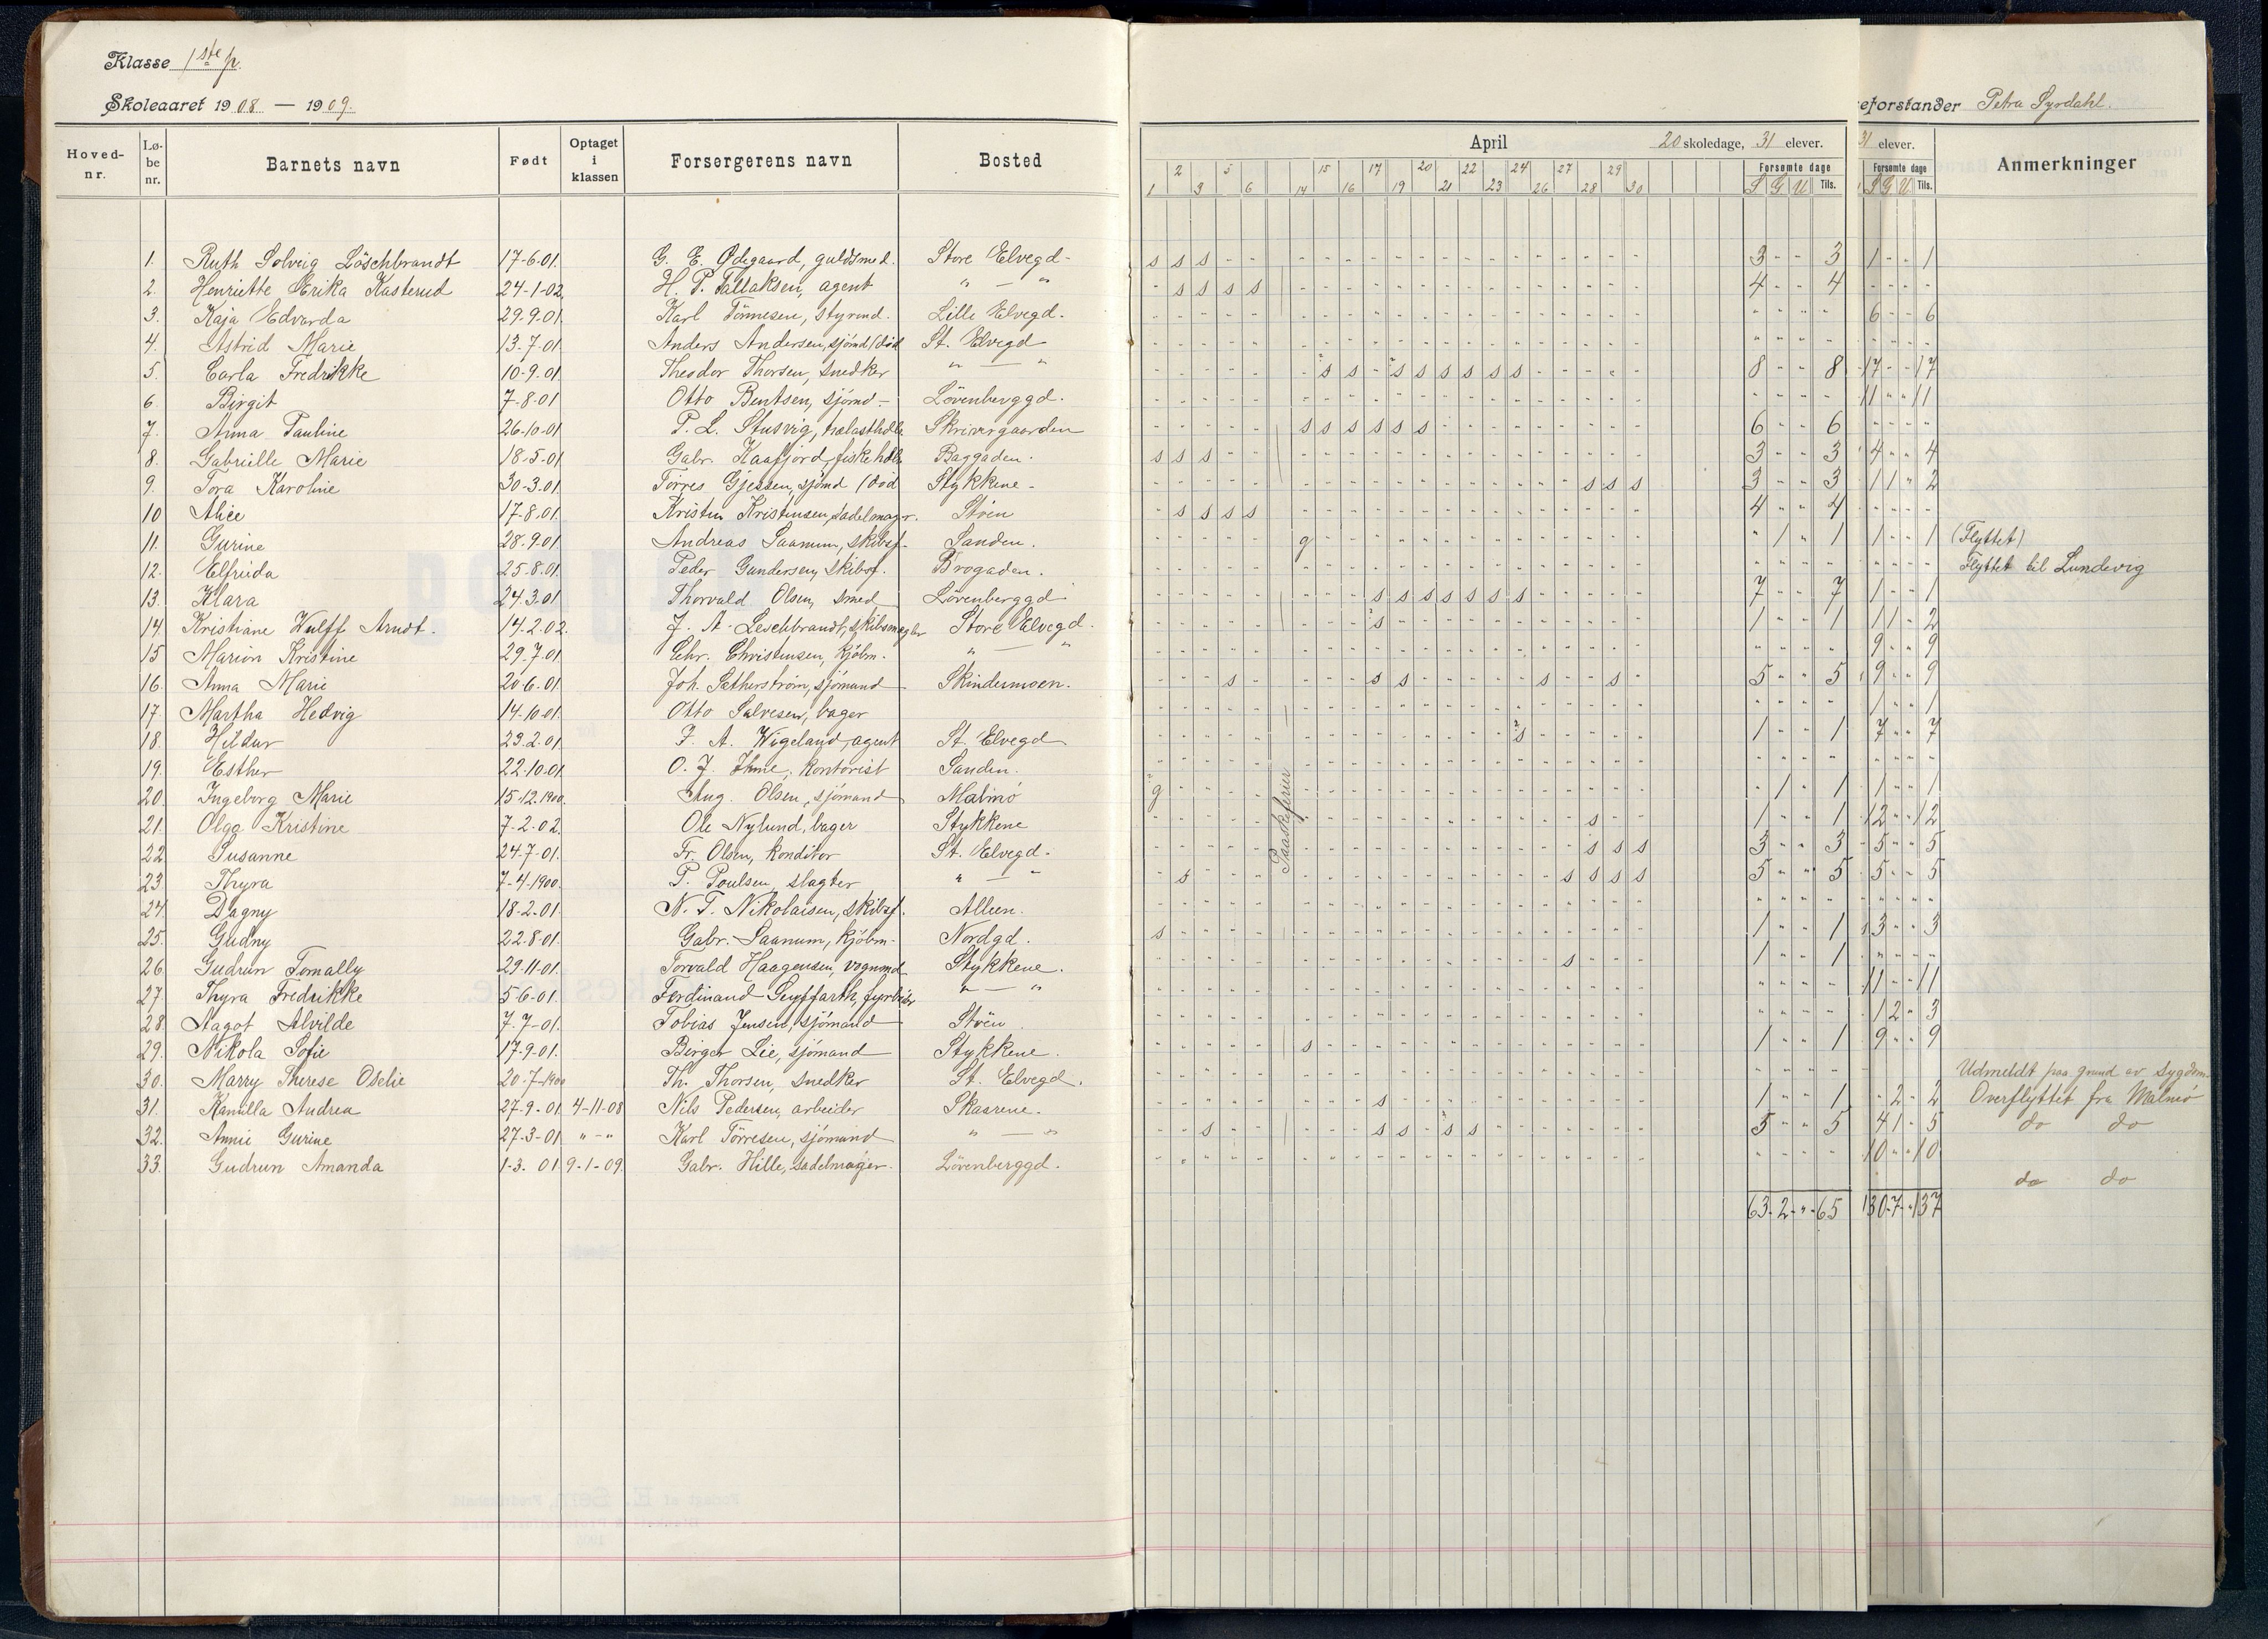 Klasse 1ste p.
Skoleaaret 1908 — 1909.
Hoved-nr. Lø-be nr. Barnets navn Født Optaget i klassen Forsørgerens navn Bosted
1. Ruth Solveig Löschbrandt 17-6-01. G. E. Ødegaard, guldsmed. Store Elvegd-
2. Henriette Erika Kasterud 24-1-02. H. P. Tallaksen, agent " — "
3. Kaja Edvarda 29-9-01. Karl Tönnesen, styrmd. Lille Elvegd.
4. Astrid Marie 13-7-01. Anders Andersen, sjömd (död St. Elvegd
5. Carla Fredrikke 10-9-01. Theodor Thorsen, snedker " — "
6. Birgit 7-8-01 Otto Bentsen, sjömd- Lövenberggd.
7. Anna Pauline 26-10-01 P. L. Stusvig, trælasthdlr Skrivergaarden
8. Gabrielle Marie 18-5-01 Gabr. Kaafjord, fiskehdlr Baggaden.
9. Tora Karoline 30-3-01. Törres Gjessen, sjömd (död Stykkene-
10 Alice 17-8-01. Kristen Kristensen, sadelmager. Stöen
11. Gurine 28-9-01. Andreas Saanum, skibsf. Sanden.
12. Elfrida 25-8-01. Peder Gundersen, skibsf. Brogaden.
13. Klara 24-3-01 Thorvald Olsen, smed Lövenberggd
14 Kristiane Wulff Arndt. 14-2-02. J. A. Leschbrandt, skibsmægler Store Elvegd.
15 Marion Kristine 29-7-01. Chr. Christensen, kjöbm. " — "
16. Anna Marie 20-6-01. Joh. Sætherström, sjömand Skindermoen.
17. Martha Hedvig 14-10-01. Otto Salvesen, bager
18. Hildur 23-2-01. F. A. Wigeland, agent St. Elvegd
19. Esther 22-10-01. O. J. Ihme, kontorist Sanden.
20. Ingeborg Marie 15-12-1900. Aug. Olsen, sjömand Malmö
21. Olga Kristine 7-2-02. Ole Nylund, bager Stykkene
22. Susanne 24-7-01. Fr. Olsen, konditor St. Elvegd-
23 Thyra 7-4-1900. P. Poulsen, slagter " — "
24. Dagny 18-2-01. N. T. Nikolaisen, skibsf. Alleen.
25. Gudny 22-8-01. Gabr. Saanum, kjöbm. Nordgd.
26 Gudrun Tomally 29-11-01. Torvald Haagensen, vognmd Stykkene.
27. Thyra Fredrikke 5-6-01. Ferdinand Seyffarth, fyrböter " — "
28. Aagot Alvilde 7-7-01. Tobias Jensen, sjömand Stöen
29. Nikola Sofie 17-9-01. Birger Lie, sjömand Stykkene.
30. Marry Therese Oselie 20-7-1900 Th. Thorsen, snedker St. Elvegd.
31. Kamilla Andrea 27-9-01 4-11-08 Nils Pedersen, arbeider Skaarene.
32. Annie Gurine 27-3-01 " - " Karl Törresen, sjömand " — "
33. Gudrun Amanda 1-3-01 9-1-09. Gabr. Hille, sadelmager. Lövenberggd.
April 20 skoledage, 31 elever.
1 2 3 5 6 14 15 16 17 19 20 21 22 23 24 26 27 28 29 30 Forsømte dage S G U Tils.
Paaskeferier
s s s 3 - - 3
s s s s 4 - - 4
s s s s s s s s 8 - - 8
s s s s s s 6 - - 6
s s s 3 - - 3
s s s 3 - - 3
s s s s 4 - - 4
g " 1 " 1
s s s s s s s 7 - - 7
s 1 - - 1
s s s s s 5 - - 5
s 1 - - 1
g - 1 - 1
s 1 - - 1
s s s 3 - - 3
s s s s s 5 - - 5
s 1 - - 1
s 1 - - 1
s 1 - - 1
s 1 - - 1
s s s s s 5 - - 5
63 - 2 - " - 65
eforstander Petra Syrdahl.
31 elever. Anmerkninger
Forsømte dage
S G U Tils.
1 - - 1
6 - - 6
17 - - 17
11 - - 11
4 - - 4
1 1 - 2
1 - - 1 (Flyttet)
Flyttet til Lundevig
1 - - 1
1 1 - 2
9 - - 9
9 - - 9
1 - - 1
7 - - 7
1 - - 1
12 - - 12
5 - - 5
5 - - 5
3 - - 3
11 - - 11
1 2 - 3
9 - - 9
Udmeldt paa grund av sygdom.
- 2 - 2 Overflyttet fra Malmö
4 1 - 5 do do
10 - - 10
do do
130 - 7 - - 137